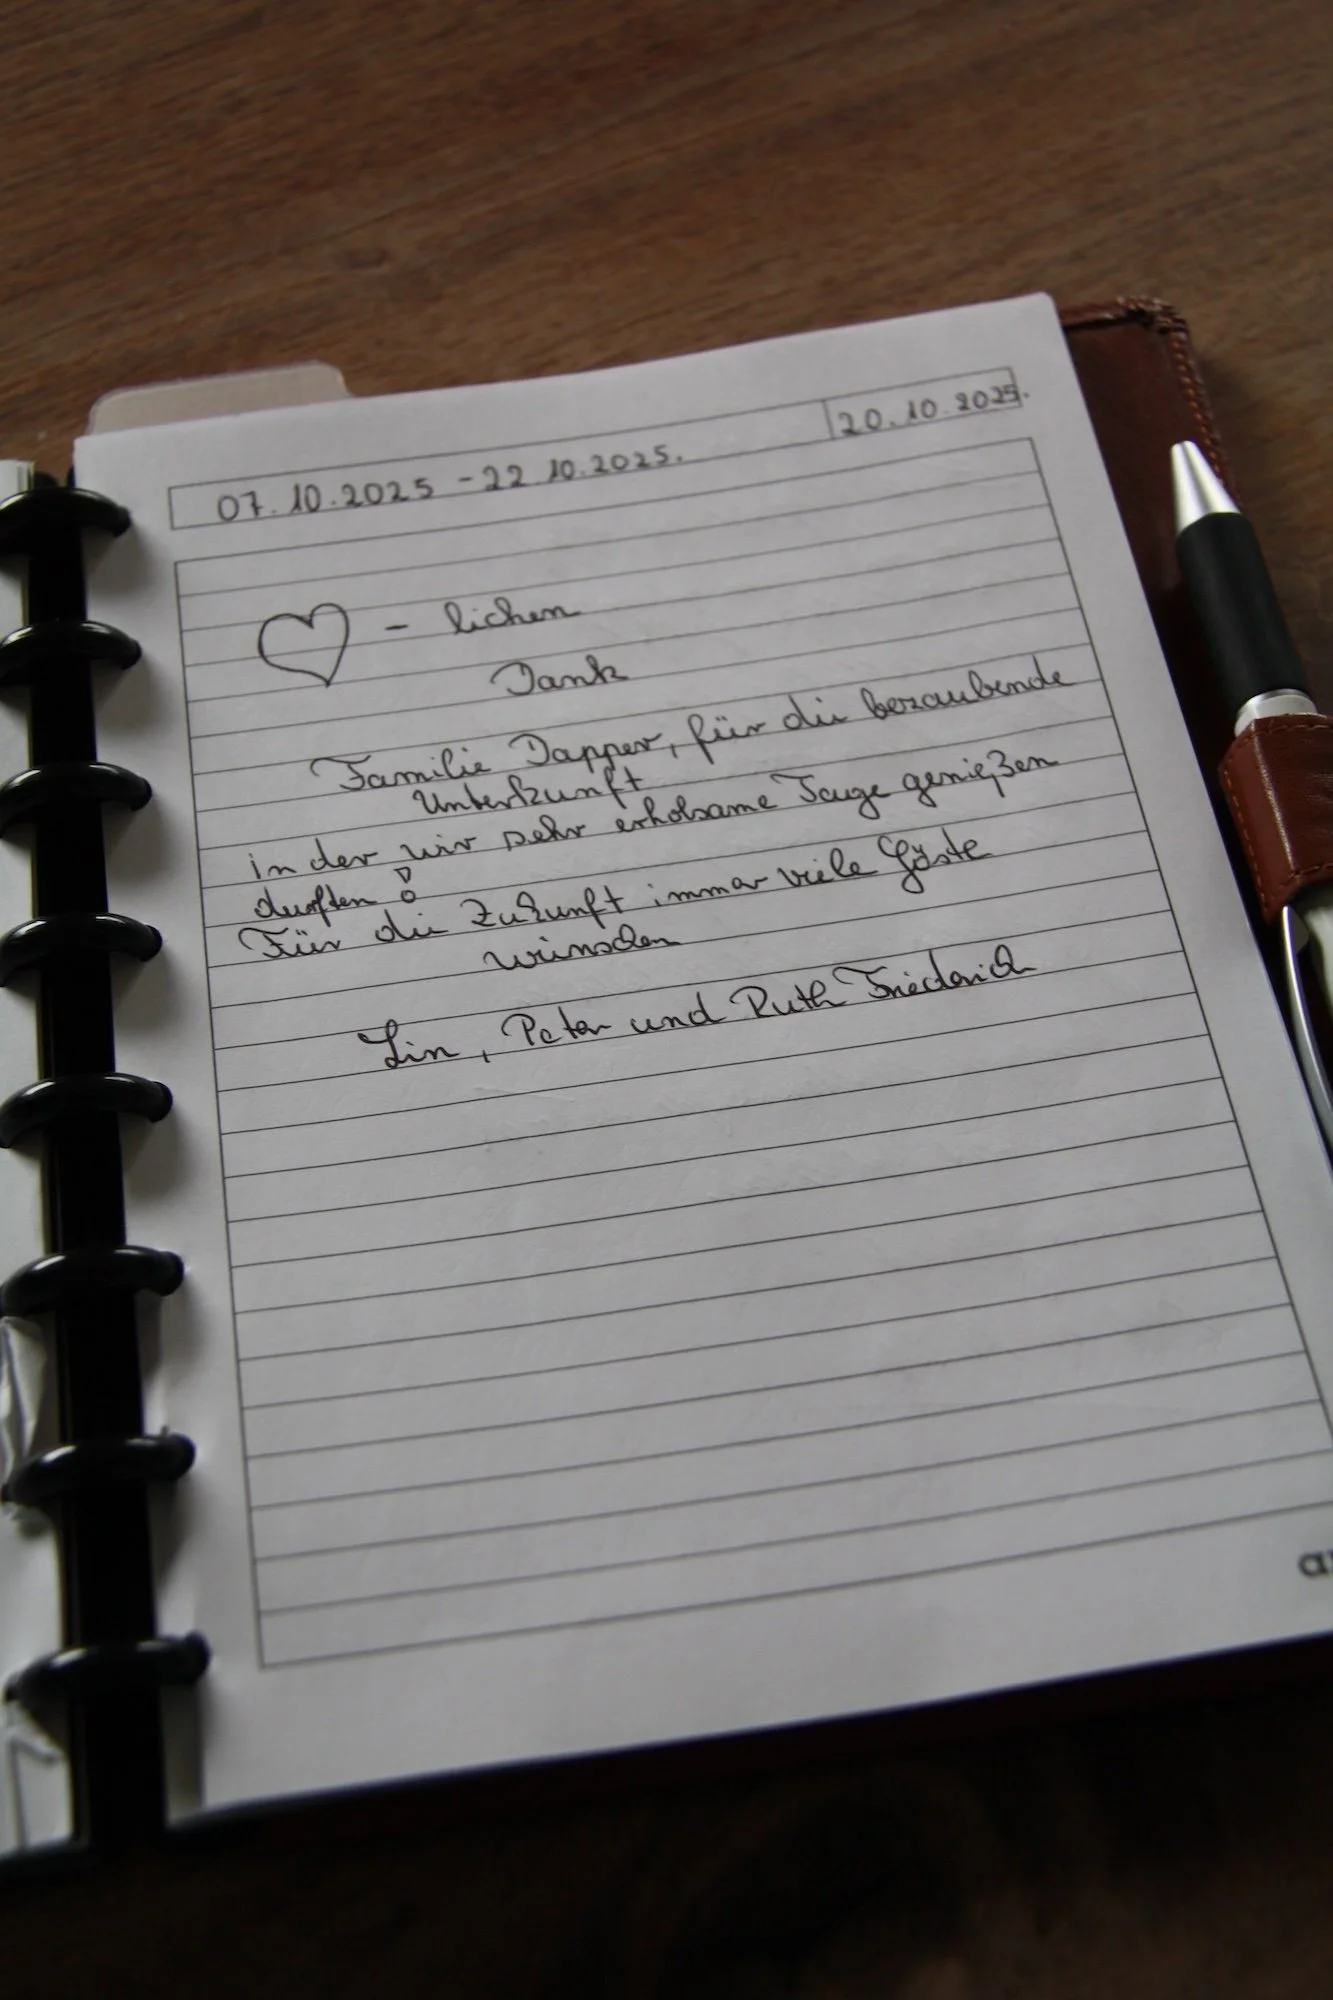 07.10.2025 - 22 10.2025.
20.10.2025.
♡ - lichen
Dank
Familie Dapper, für die bezaubende
Unterkunft
in der wir sehr erholsame Tage genießen
durften!
Für die Zukunft immer viele Gäste
wünschen
Lin, Peter und Ruth Friederich